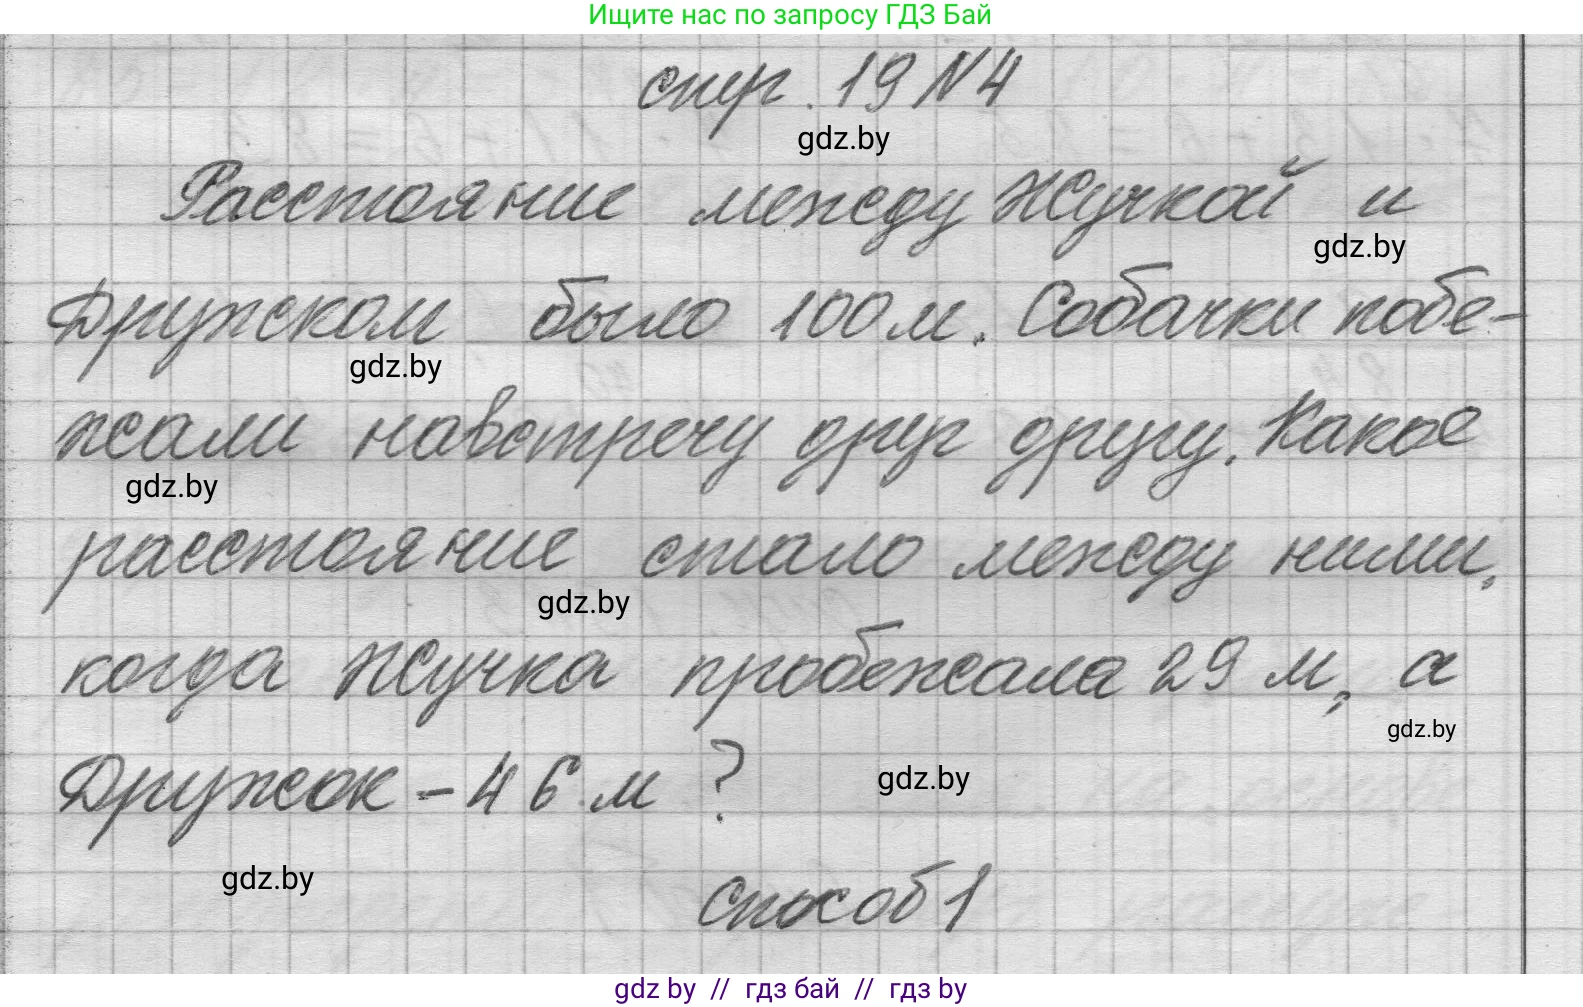 Ищите нас по запросу ГДЗ Бай
стр. 19 N4
gdz.by
Расстояние между Жучкой и
gdz.by
Дружком было 100 м. Собачки побе-
gdz.by
жали навстречу друг другу. Какое
gdz.by
расстояние стало между ними,
gdz.by
когда Жучка пробежала 29 м, а
gdz.by
Дружок - 46 м ?
gdz.by
gdz.by
способ 1
gdz by // гдз бай // гдз by